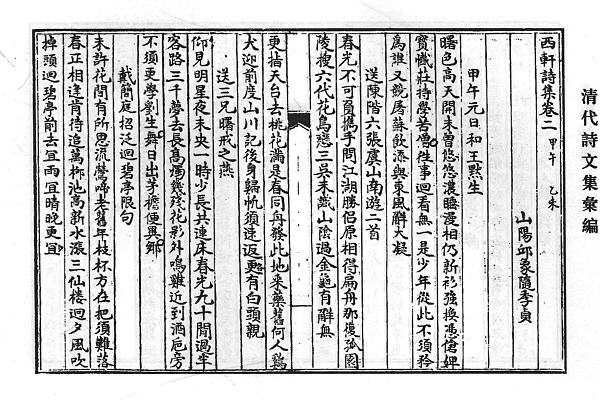 清代詩文集彙編
西軒詩集卷二 甲午 乙未
山陽邱象隨季貞
甲午元日和王黙生
曙色高天開未曾悠悠漢臘漫相仍新衫強換馮傖婢
寶懺莊持學苦僧往事迴看無一是少年從此不須矜
為誰又說屠蘇飲添與東風辭大凝
送陳階六張虞山南遊二首
春光不可負攜手問江湖勝侶原相得扁舟那復孤園
陵搜六代花鳥戀三吳未識山陰過金龜有辭無
更指天台去桃花滿是春同舟發此地采藥舊何人鷄
犬迎前度山川記後身歸帆須速返更有白頭親
送三兄曙戒之燕
仰見明星夜未央一時少長共連床春光九十閒過半
客路三千夢去長高燭幾殘花影外鳴雞近到酒巵旁
不須更學劉生舞日出茅檐便異鄉
戴簡庭招泛迴碧亭限句
未許花間有所思流鶯啼老舊年枝杯方在把須難落
春正相逢肯待追萬柳池高新水漲三仙樓迴夕風吹
掉頭迴碧亭前去宜雨宜晴晚更宜